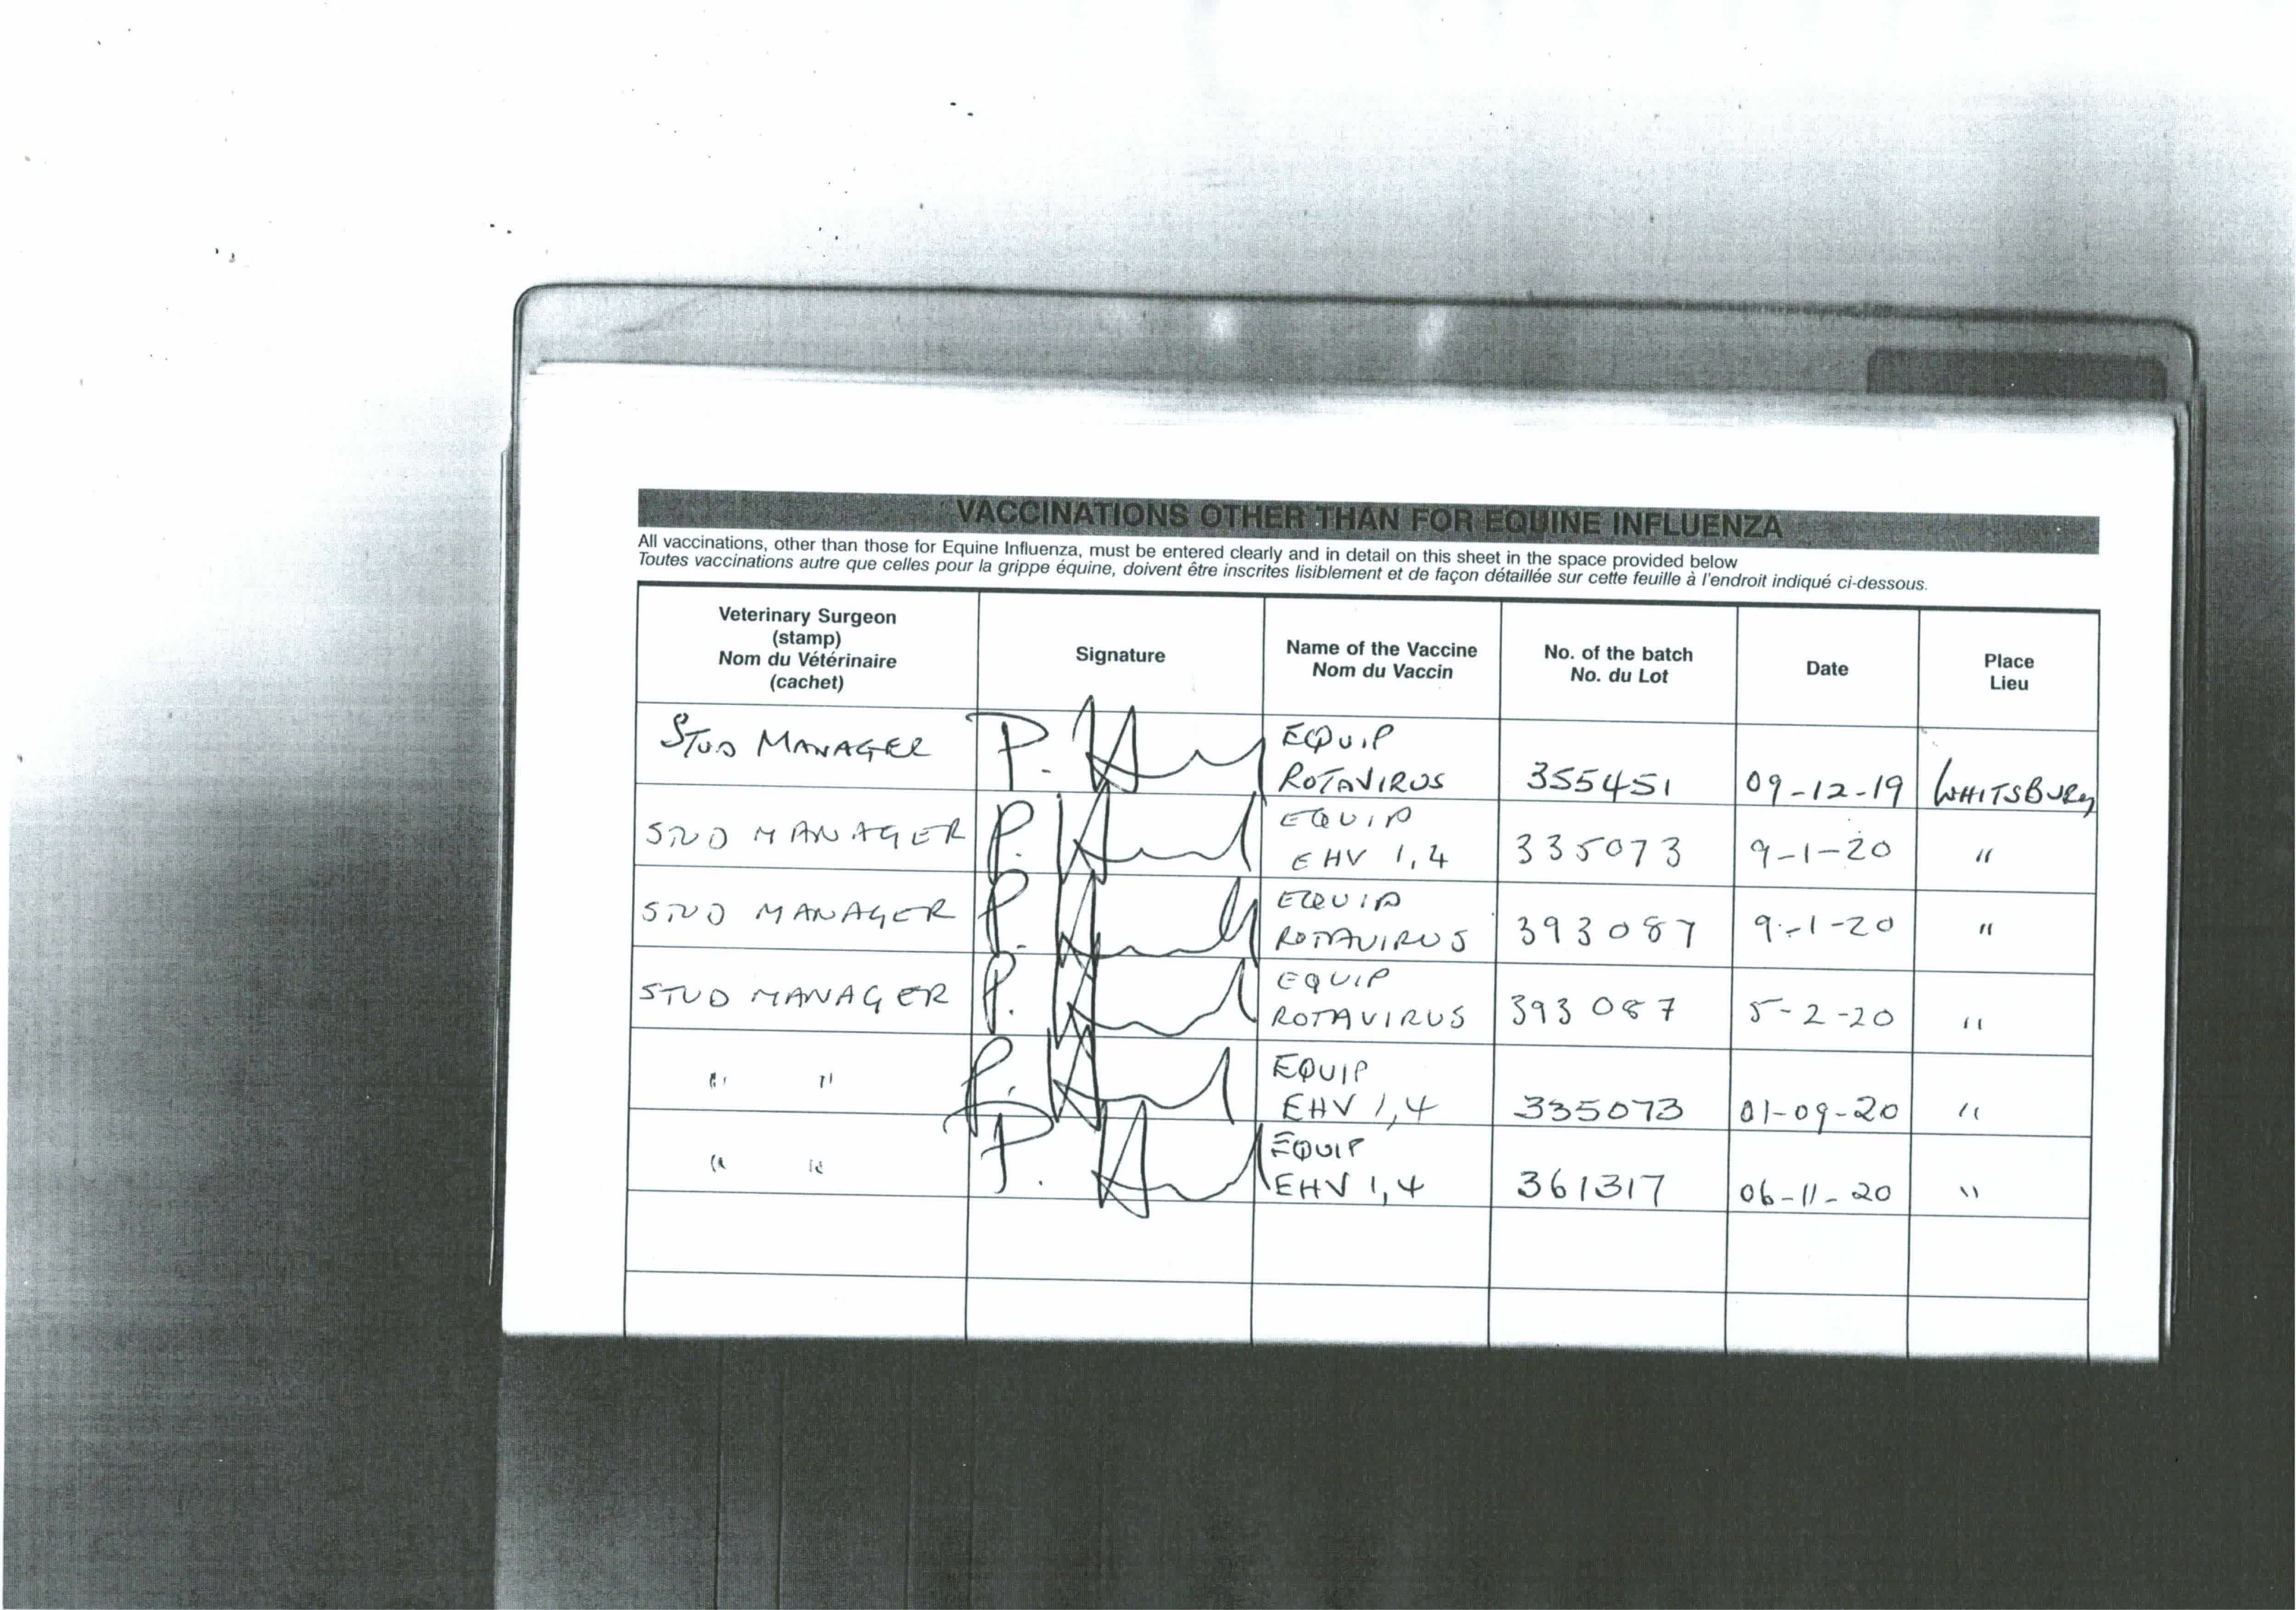 VACCINATIONS OTHER THAN FOR EQUINE INFLUENZA
All vaccinations, other than those for Equine Influenza, must be entered clearly and in detail on this sheet in the space provided below
Toutes vaccinations autre que celles pour la grippe équine, doivent être inscrites lisiblement et de façon détaillée sur cette feuille à l'endroit indiqué ci-dessous.
Veterinary Surgeon
(stamp)
Nom du Vétérinaire
(cachet)
Signature
Name of the Vaccine
Nom du Vaccin
No. of the batch
No. du Lot
Date
Place
Lieu
STUD MANAGER P. EQUIP
ROTAVIRUS 355451 09-12-19 WHITSBURY
STUD MANAGER P. EQUIP
EHV 1,4 335073 9-1-20 "
STUD MANAGER P. EQUIP
ROTAVIRUS 393087 9-1-20 "
STUD MANAGER P. EQUIP
ROTAVIRUS 393087 5-2-20 "
" " P. EQUIP
EHV 1,4 335073 01-09-20 "
" " P. EQUIP
EHV 1,4 361317 06-11-20 "